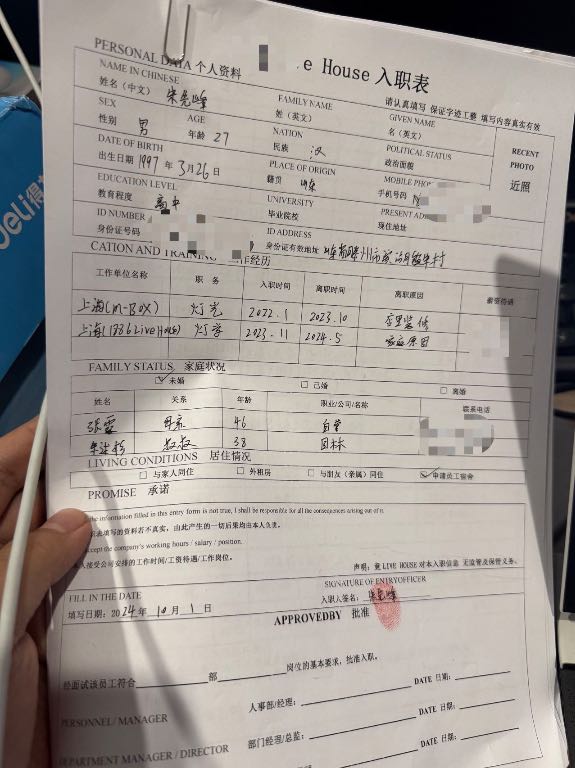 e House 入职表
PERSONAL DATA 个人资料
请认真填写 保证字迹工整 填写内容真实有效
NAME IN CHINESE
姓名（中文） 宋先峰
FAMILY NAME
姓（英文）
GIVEN NAME
名（英文）
RECENT
PHOTO
近照
SEX
性别 男
AGE
年龄 27
NATION
民族 汉
POLITICAL STATUS
政治面貌
DATE OF BIRTH
出生日期 1997 年 3月26日
PLACE OF ORIGIN
籍贯
MOBILE PHO
手机号码
EDUCATION LEVEL
教育程度 高中
UNIVERSITY
毕业院校
PRESENT ADD
现住地址
ID NUMBER
身份证号码
ID ADDRESS
身份证有效地址
CATION AND TRAINING 工作经历
工作单位名称 职务 入职时间 离职时间 离职原因 薪资待遇
上海(m-Box) 灯光 2022.1 2023.10 店里装修
上海(1886LiveHouse) 灯学 2023.11 2024.5 家庭原因
FAMILY STATUS 家庭状况
☑ 未婚 □ 已婚 □ 离婚
姓名 关系 年龄 职业/公司/名称 联系电话
张霞 母亲 46 自营
叔叔 38 园林
LIVING CONDITIONS 居住情况
□ 与家人同住 □ 外租房 □ 与朋友（亲属）同住 ☑ 申请员工宿舍
PROMISE 承诺
the information filled in this entry form is not true, I shall be responsible for all the consequences arising out of it.
表填写的资料若不真实，由此产生的一切后果均由本人负责。
accept the company's working hours / salary / position.
人接受公司安排的工作时间/工资待遇/工作岗位。
声明：竟 LIVE HOUSE 对本入职信息 无监管及保管义务。
FILL IN THE DATE
填写日期：2024年 10月 1日
SIGNATURE OF ENTRYOFFICER
入职人签名：宋先峰
APPROVEDBY 批准
经面试该员工符合 部 岗位的基本要求，批准入职。
PERSONNEL/ MANAGER
人事部/经理：
DATE 日期：
DEPARTMENT MANAGER / DIRECTOR
部门经理/总监：
DATE 日期：
批准：
DATE 日期：
Deli得